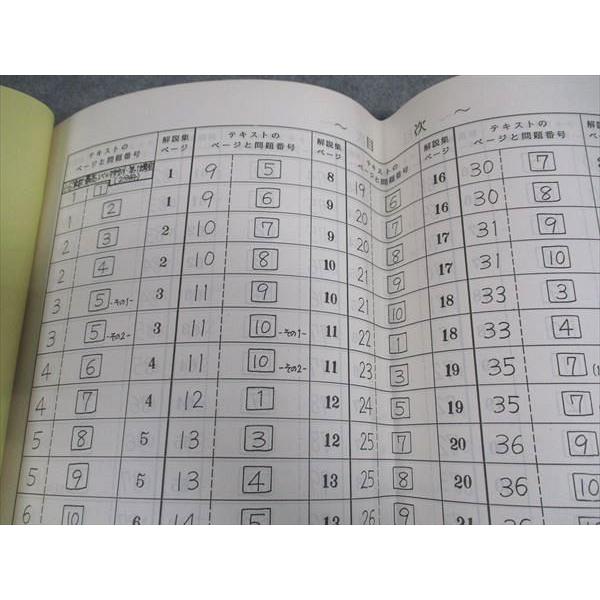 〜 目 次 〜
テキストの ページと問題番号 解説集 ページ テキストの ページと問題番号 解説集 ページ テキストの ページと問題番号 解説集 ページ テキストの ページと問題番号
1 1 1 9 5 8 19 6 16 30 7
1 2 1 9 6 9 20 7 16 30 8
2 3 2 10 7 9 20 8 17 31 9
2 4 2 10 8 10 21 9 17 31 10
3 5 -その1- 3 11 9 10 21 10 18 33 3
3 5 -その2- 3 11 10 -その1- 11 22 1 18 33 4
4 6 4 11 10 -その2- 11 23 3 19 35 7
4 7 4 12 1 12 24 5 19 35 7
5 8 5 13 3 12 25 7 20 36 9
5 9 5 13 4 13 25 8 20 36 10
6 10 6 14 5 13 26 9 21 36